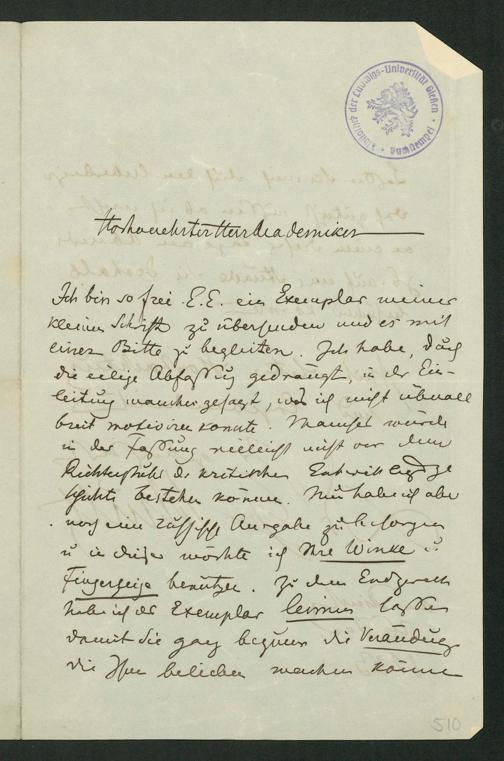 Bibliothek der Ludwigs-Universität Gießen
Buchstempel
Hochverehrter Herr Akademiker
Ich bin so frei E.E. ein Exemplar meiner
kleinen Schrift zu übersenden und es mit
einer Bitte zu begleiten. Ich habe, durch
die eilige Abfassung gedrängt, in der Ein-
leitung manches gesagt, was ich nicht überall
breit motiviren konnte. Manches würde
in der Fassung vielleicht nicht vor dem
Richterstuhle der kritischen
bestehen können. Nun habe ich aber
noch eine russische Ausgabe zu besorgen
u in dieser möchte ich Ihre Winke u
Fingerzeige benützen. Zu dem Endzweck
habe ich das Exemplar lassen
damit Sie ganz bequem die
die Ihnen belieben machen können
510